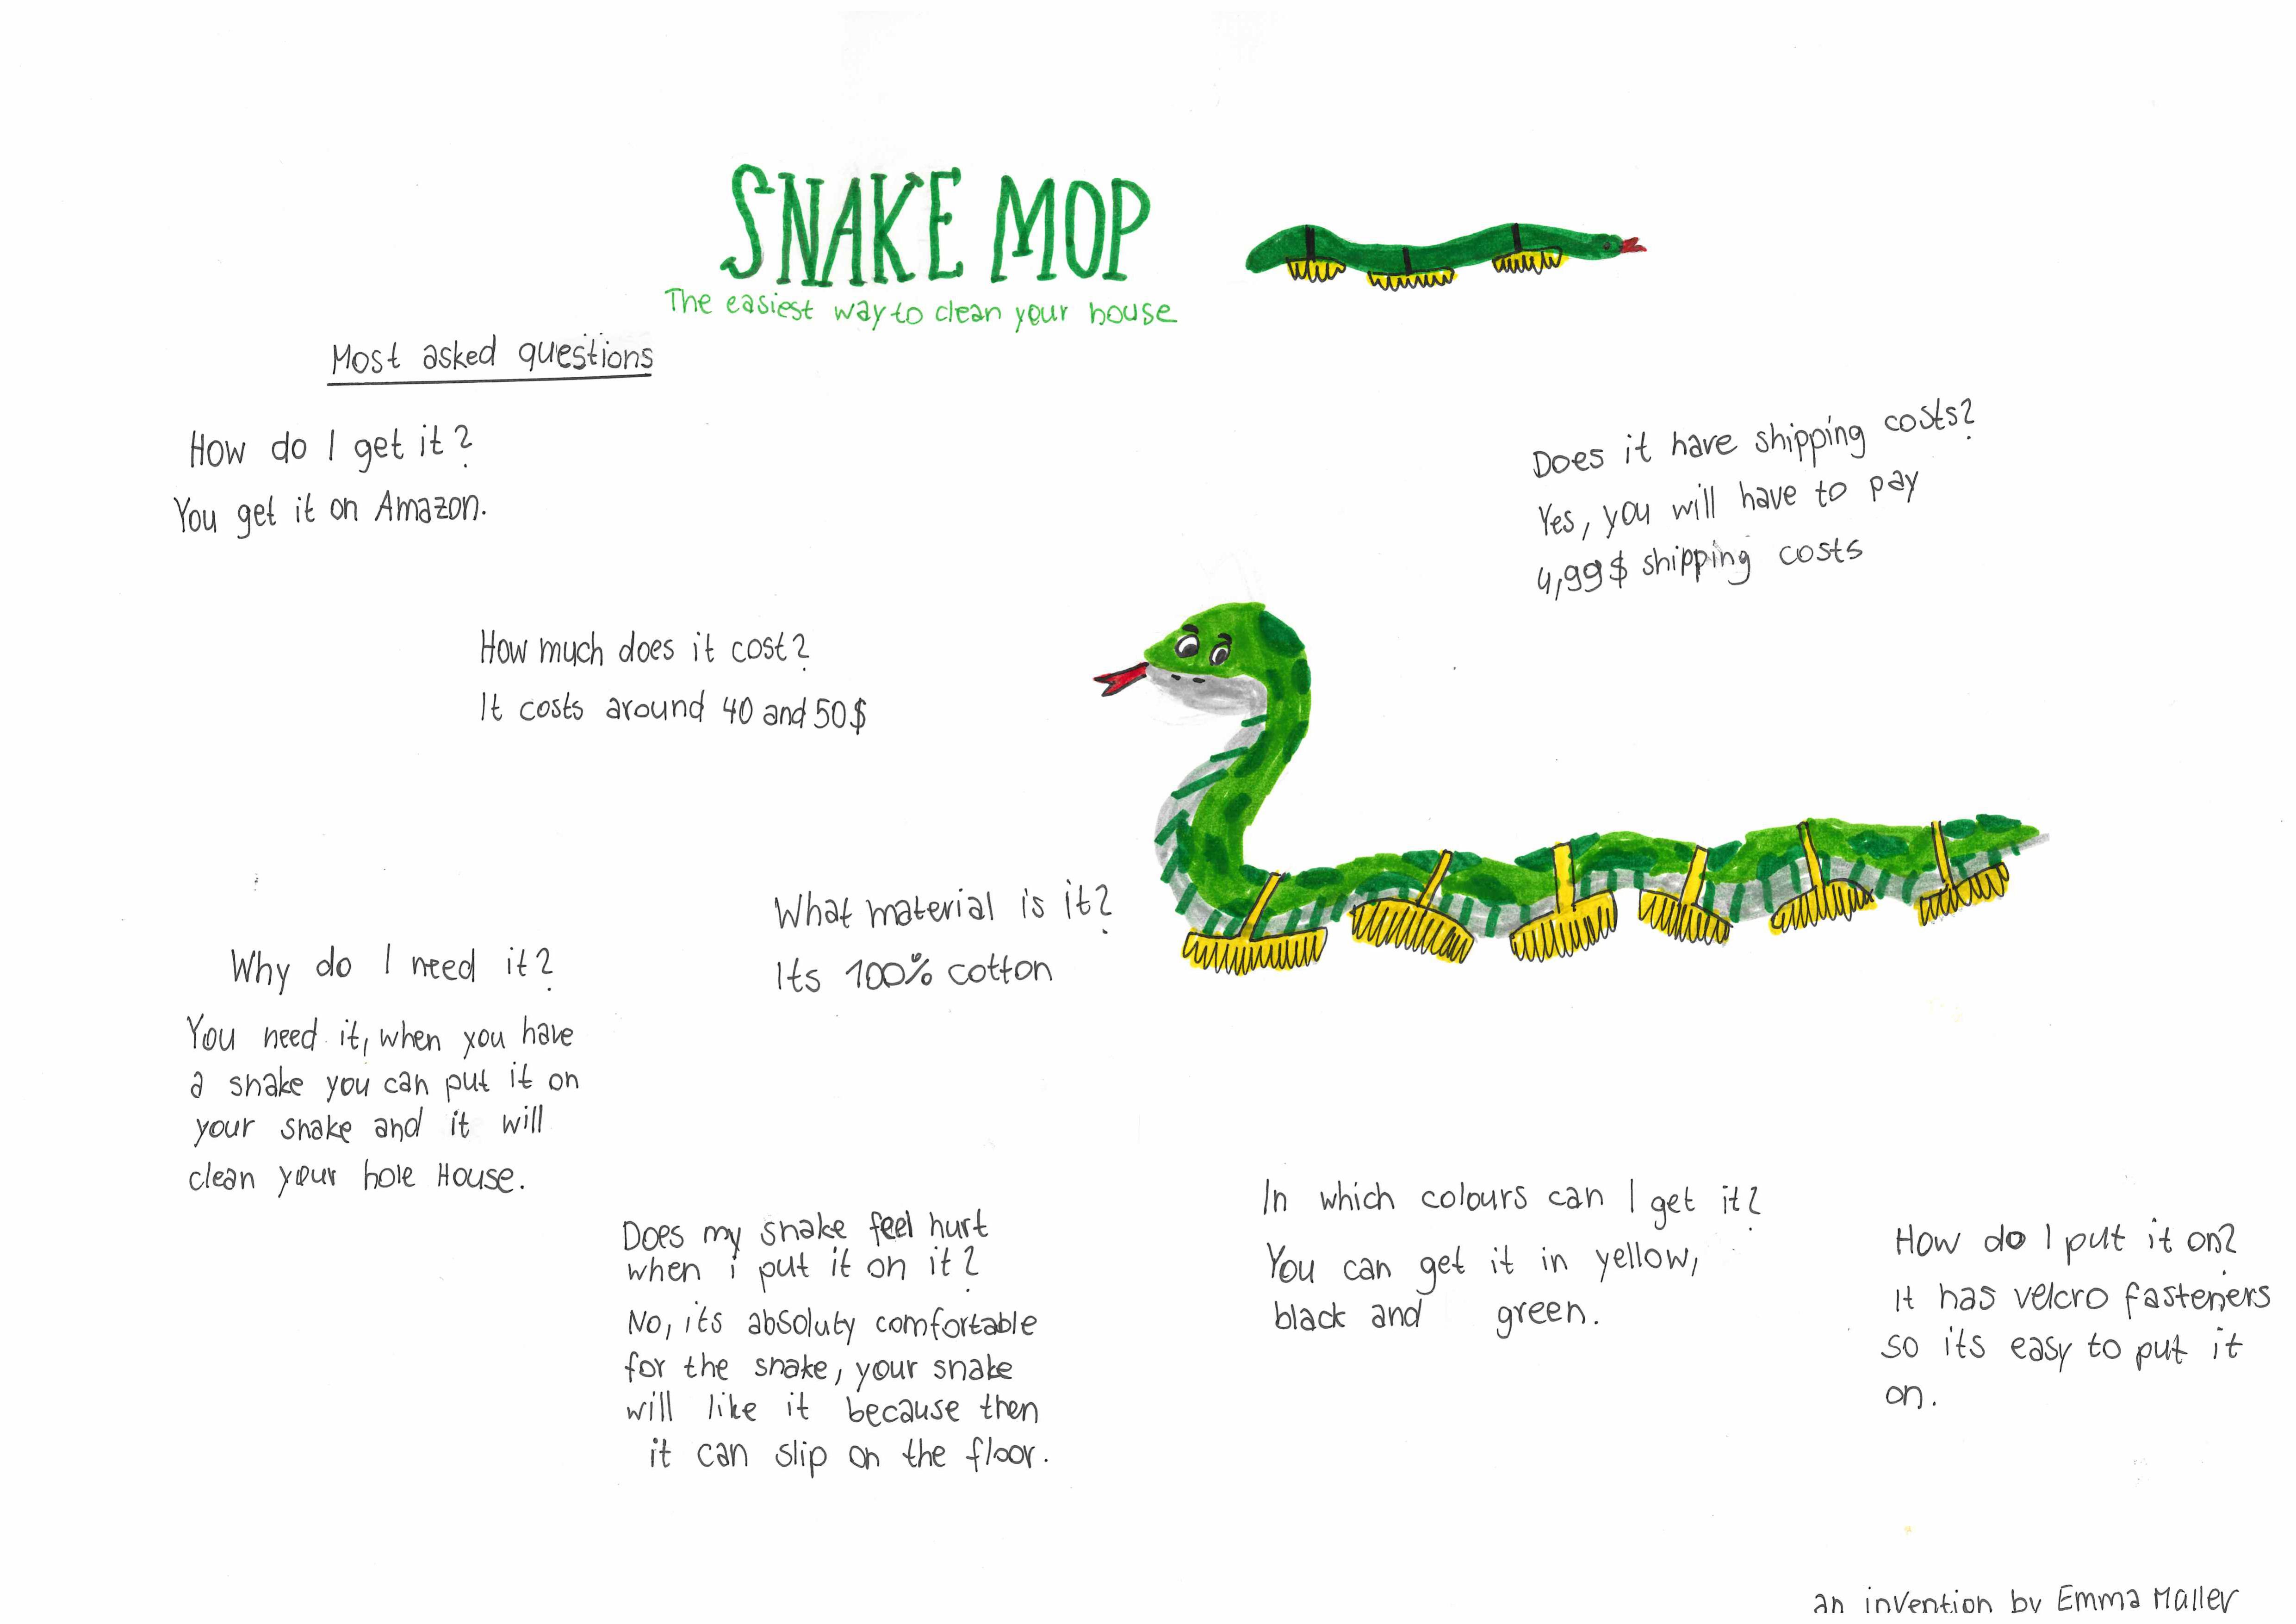 SNAKE MOP
The easiest way to clean your house
Most asked questions
How do I get it?
You get it on Amazon.
Does it have shipping costs?
Yes, you will have to pay
4,99$ shipping costs
How much does it cost?
It costs around 40 and 50$
What material is it?
Its 100% cotton
Why do I need it?
You need it, when you have
a snake you can put it on
your snake and it will
clean your hole House.
Does my snake feel hurt
when i put it on it?
No, its absoluty comfortable
for the snake, your snake
will like it because then
it can slip on the floor.
In which colours can I get it?
You can get it in yellow,
black and green.
How do I put it on?
It has velcro fasteners
so its easy to put it
on.
an invention by Emma Maller